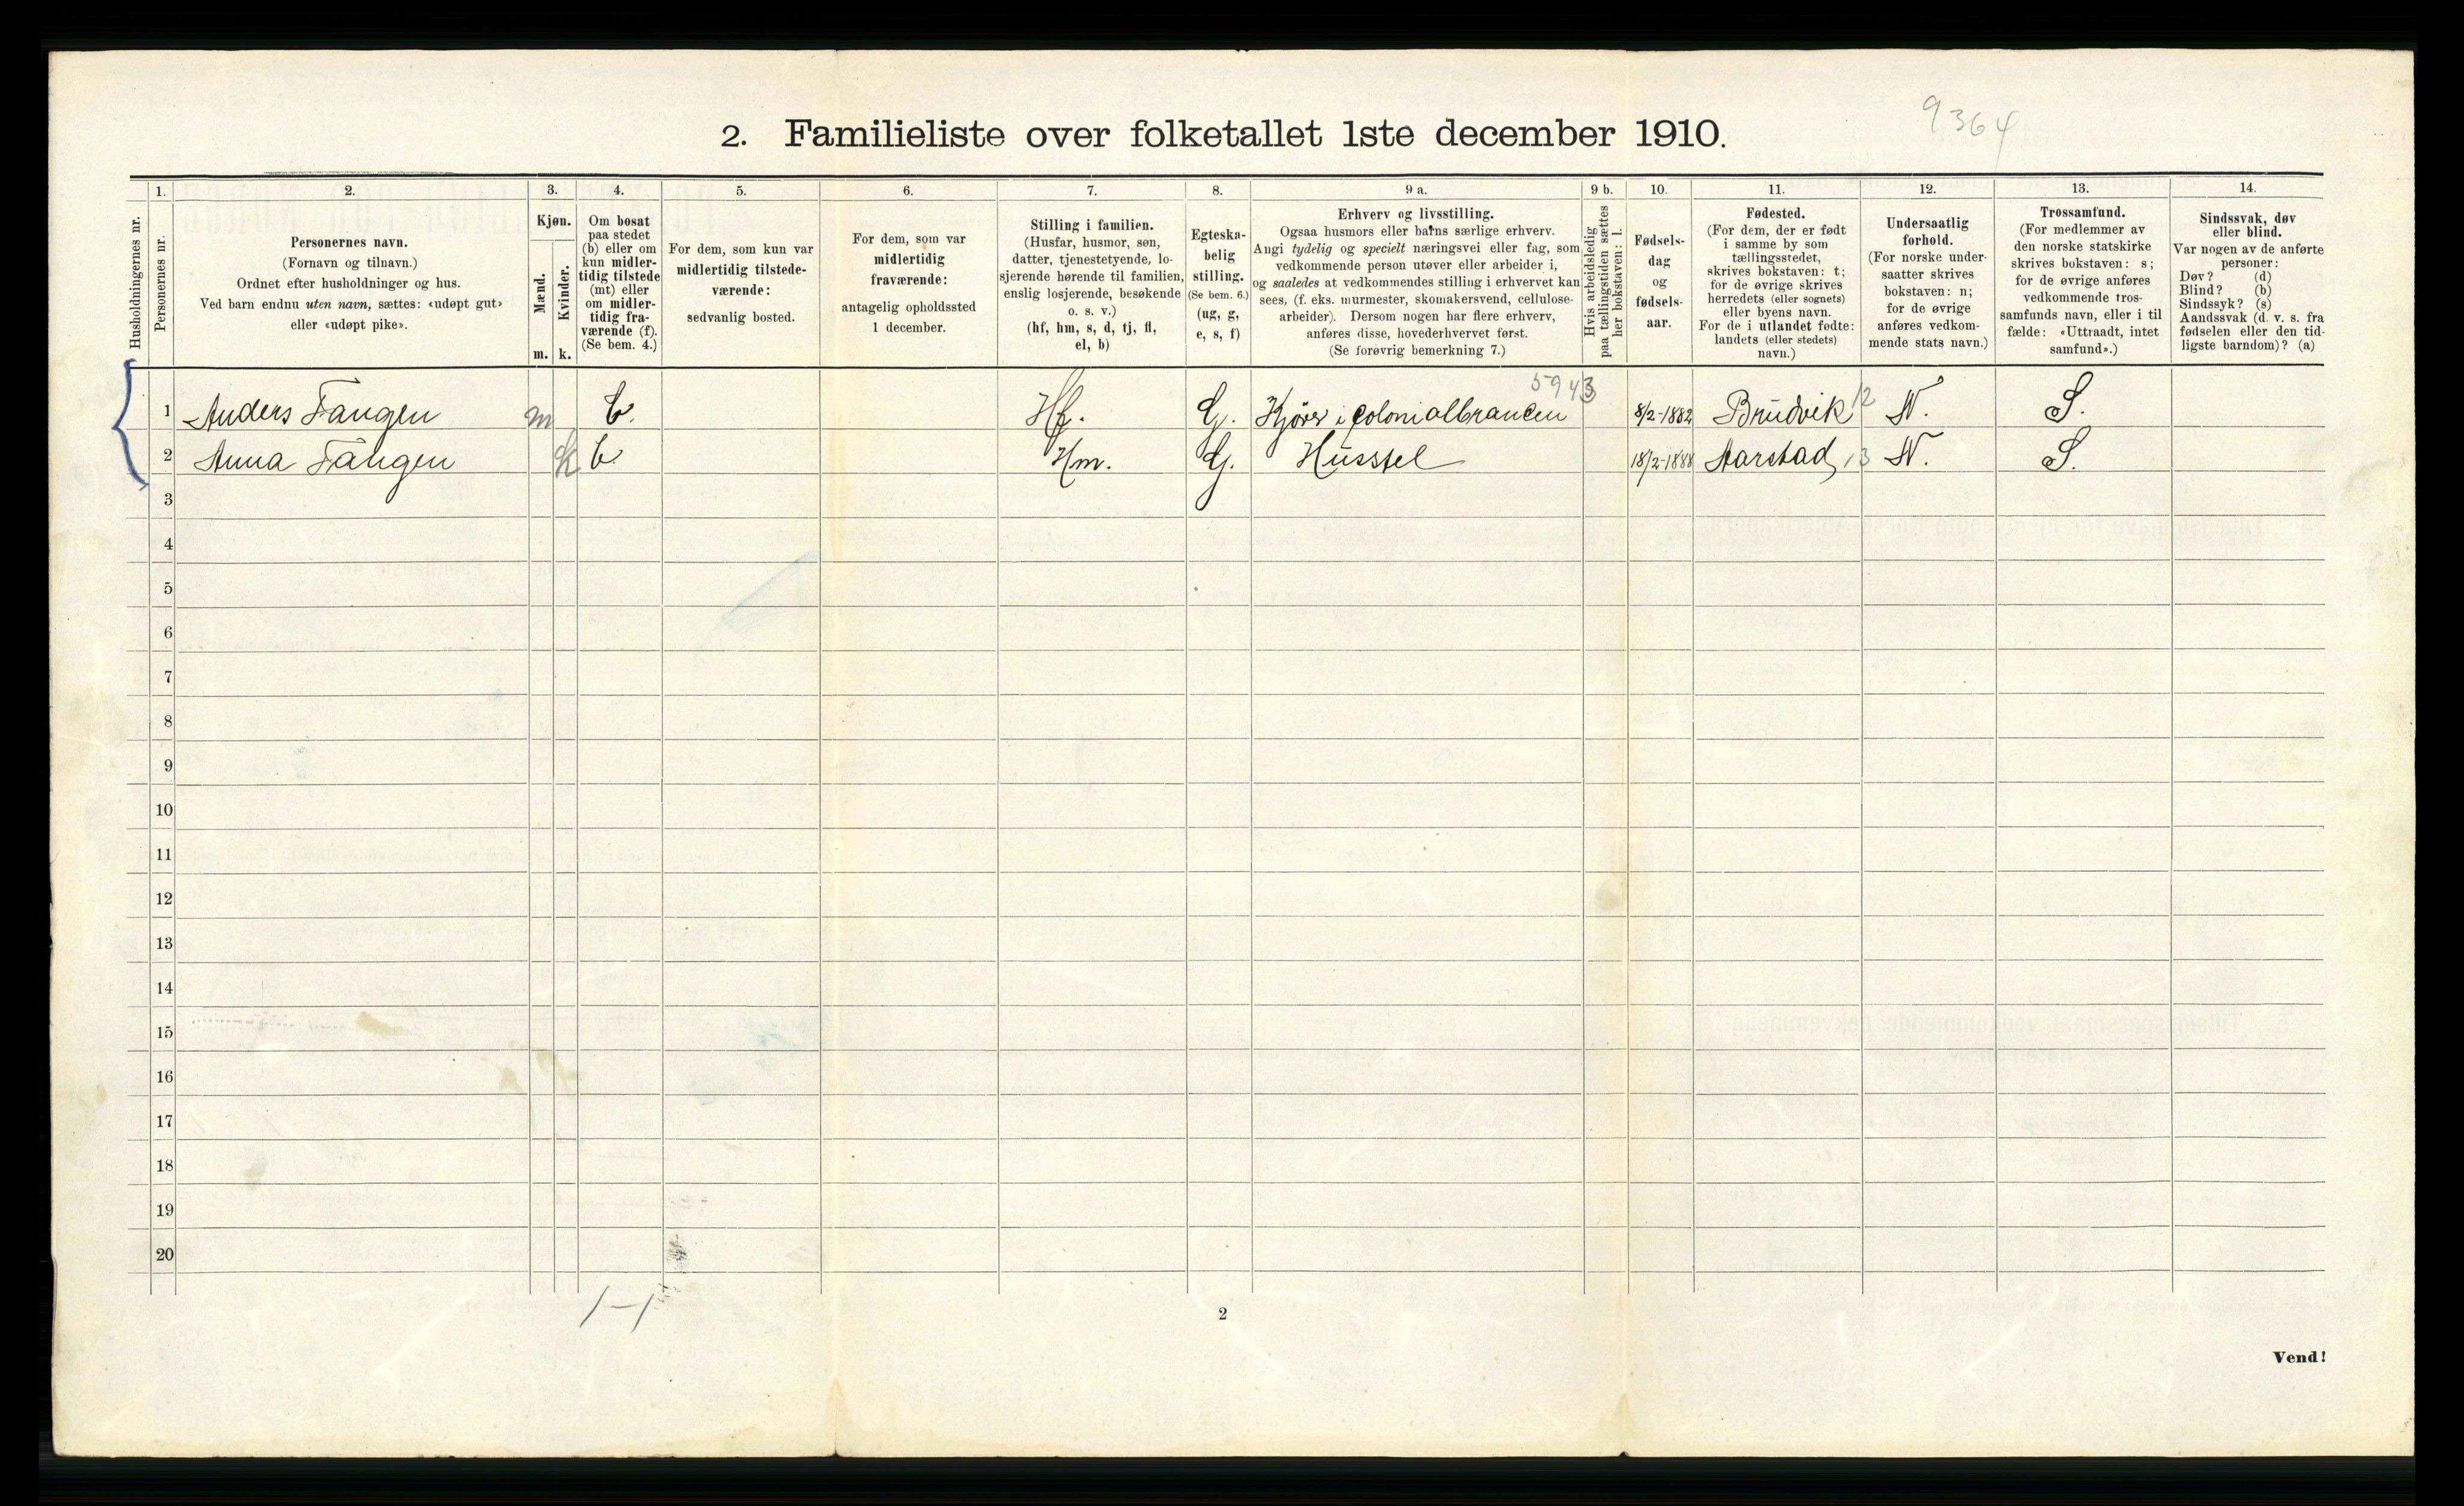 9364
2. Familieliste over folketallet 1ste december 1910.
1. 2. 3. 4. 5. 6. 7. 8. 9 a. 9 b. 10. 11. 12. 13. 14.
Husholdningernes nr.
Personernes nr.
Personernes navn.
(Fornavn og tilnavn.)
Ordnet efter husholdninger og hus.
Ved barn endnu uten navn, sættes: «udøpt gut»
eller «udøpt pike».
Kjøn.
Mænd.
Kvinder.
m. k.
Om bosat
paa stedet
(b) eller om
kun midler-
tidig tilstede
(mt) eller
om midler-
tidig fra-
værende (f).
(Se bem. 4.)
For dem, som kun var
midlertidig tilstede-
værende:
sedvanlig bosted.
For dem, som var
midlertidig
fraværende:
antagelig opholdssted
1 december.
Stilling i familien.
(Husfar, husmor, søn,
datter, tjenestetyende, lo-
sjerende hørende til familien,
enslig losjerende, besøkende
o. s. v.)
(hf, hm, s, d, tj, fl,
el, b)
Egteska-
belig
stilling.
(Se bem. 6.)
(ug, g,
e, s, f)
Erhverv og livsstilling.
Ogsaa husmors eller barns særlige erhverv.
Angi tydelig og specielt næringsvei eller fag, som
vedkommende person utøver eller arbeider i,
og saaledes at vedkommendes stilling i erhvervet kan
sees, (f. eks. murmester, skomakersvend, cellulose-
arbeider). Dersom nogen har flere erhverv,
anføres disse, hovederhvervet først.
(Se forøvrig bemerkning 7.)
Hvis arbeidsledig
paa tællingstiden sættes
her bokstaven: l.
Fødsels-
dag
og
fødsels-
aar.
Fødested.
(For dem, der er født
i samme by som
tællingsstedet,
skrives bokstaven: t;
for de øvrige skrives
herredets (eller sognets)
eller byens navn.
For de i utlandet fødte:
landets (eller stedets)
navn.)
Undersaatlig
forhold.
(For norske under-
saatter skrives
bokstaven: n;
for de øvrige
anføres vedkom-
mende stats navn.)
Trossamfund.
(For medlemmer av
den norske statskirke
skrives bokstaven: s;
for de øvrige anføres
vedkommende tros-
samfunds navn, eller i til
fælde: «Uttraadt, intet
samfund».)
Sindssvak, døv
eller blind.
Var nogen av de anførte
personer:
Døv? (d)
Blind? (b)
Sindssyk? (s)
Aandssvak (d. v. s. fra
fødselen eller den tid-
ligste barndom)? (a)
5943
1 Anders Fangen m b. Hf. G. Kjörer i Colonialbrancen 8/2-1882 Brudvik 12 N. S.
2 Anna Fangen k b. Hm. G. Husstel 18/2-1888 Aarstad 13 N. S.
3
4
5
6
7
8
9
10
11
12
13
14
15
16
17
18
19
20
1-1
2
Vend!